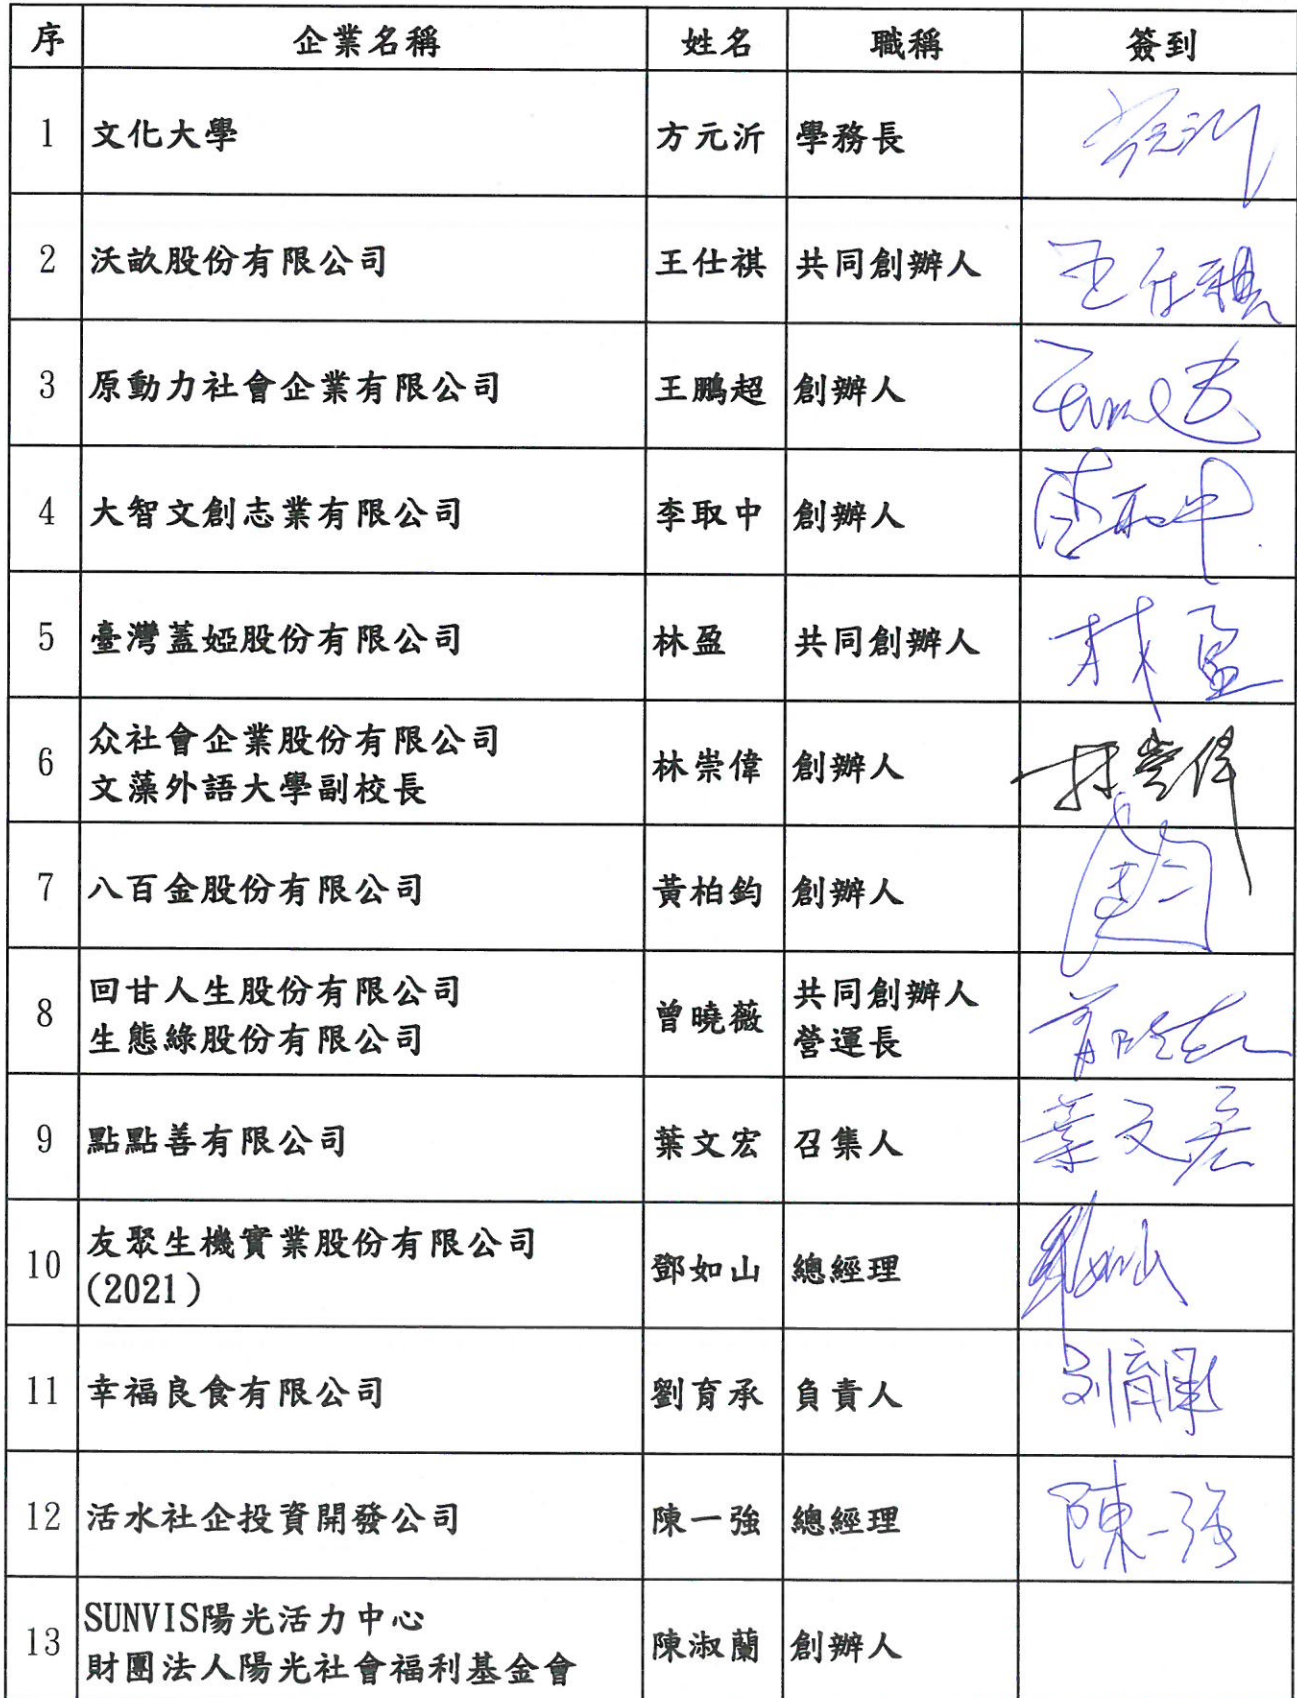 序 企業名稱 姓名 職稱 簽到
1 文化大學 方元沂 學務長 方元沂
2 沃畝股份有限公司 王仕祺 共同創辦人 王仕祺
3 原動力社會企業有限公司 王鵬超 創辦人
4 大智文創志業有限公司 李取中 創辦人 李取中
5 臺灣蓋婭股份有限公司 林盈 共同創辦人 林盈
6 众社會企業股份有限公司
文藻外語大學副校長 林崇偉 創辦人 林崇偉
7 八百金股份有限公司 黃柏鈞 創辦人
8 回甘人生股份有限公司
生態綠股份有限公司 曾曉薇 共同創辦人
營運長
9 點點善有限公司 葉文宏 召集人 葉文宏
10 友聚生機實業股份有限公司
(2021) 鄧如山 總經理 鄧如山
11 幸福良食有限公司 劉育承 負責人
12 活水社企投資開發公司 陳一強 總經理 陳一强
13 SUNVIS陽光活力中心
財團法人陽光社會福利基金會 陳淑蘭 創辦人